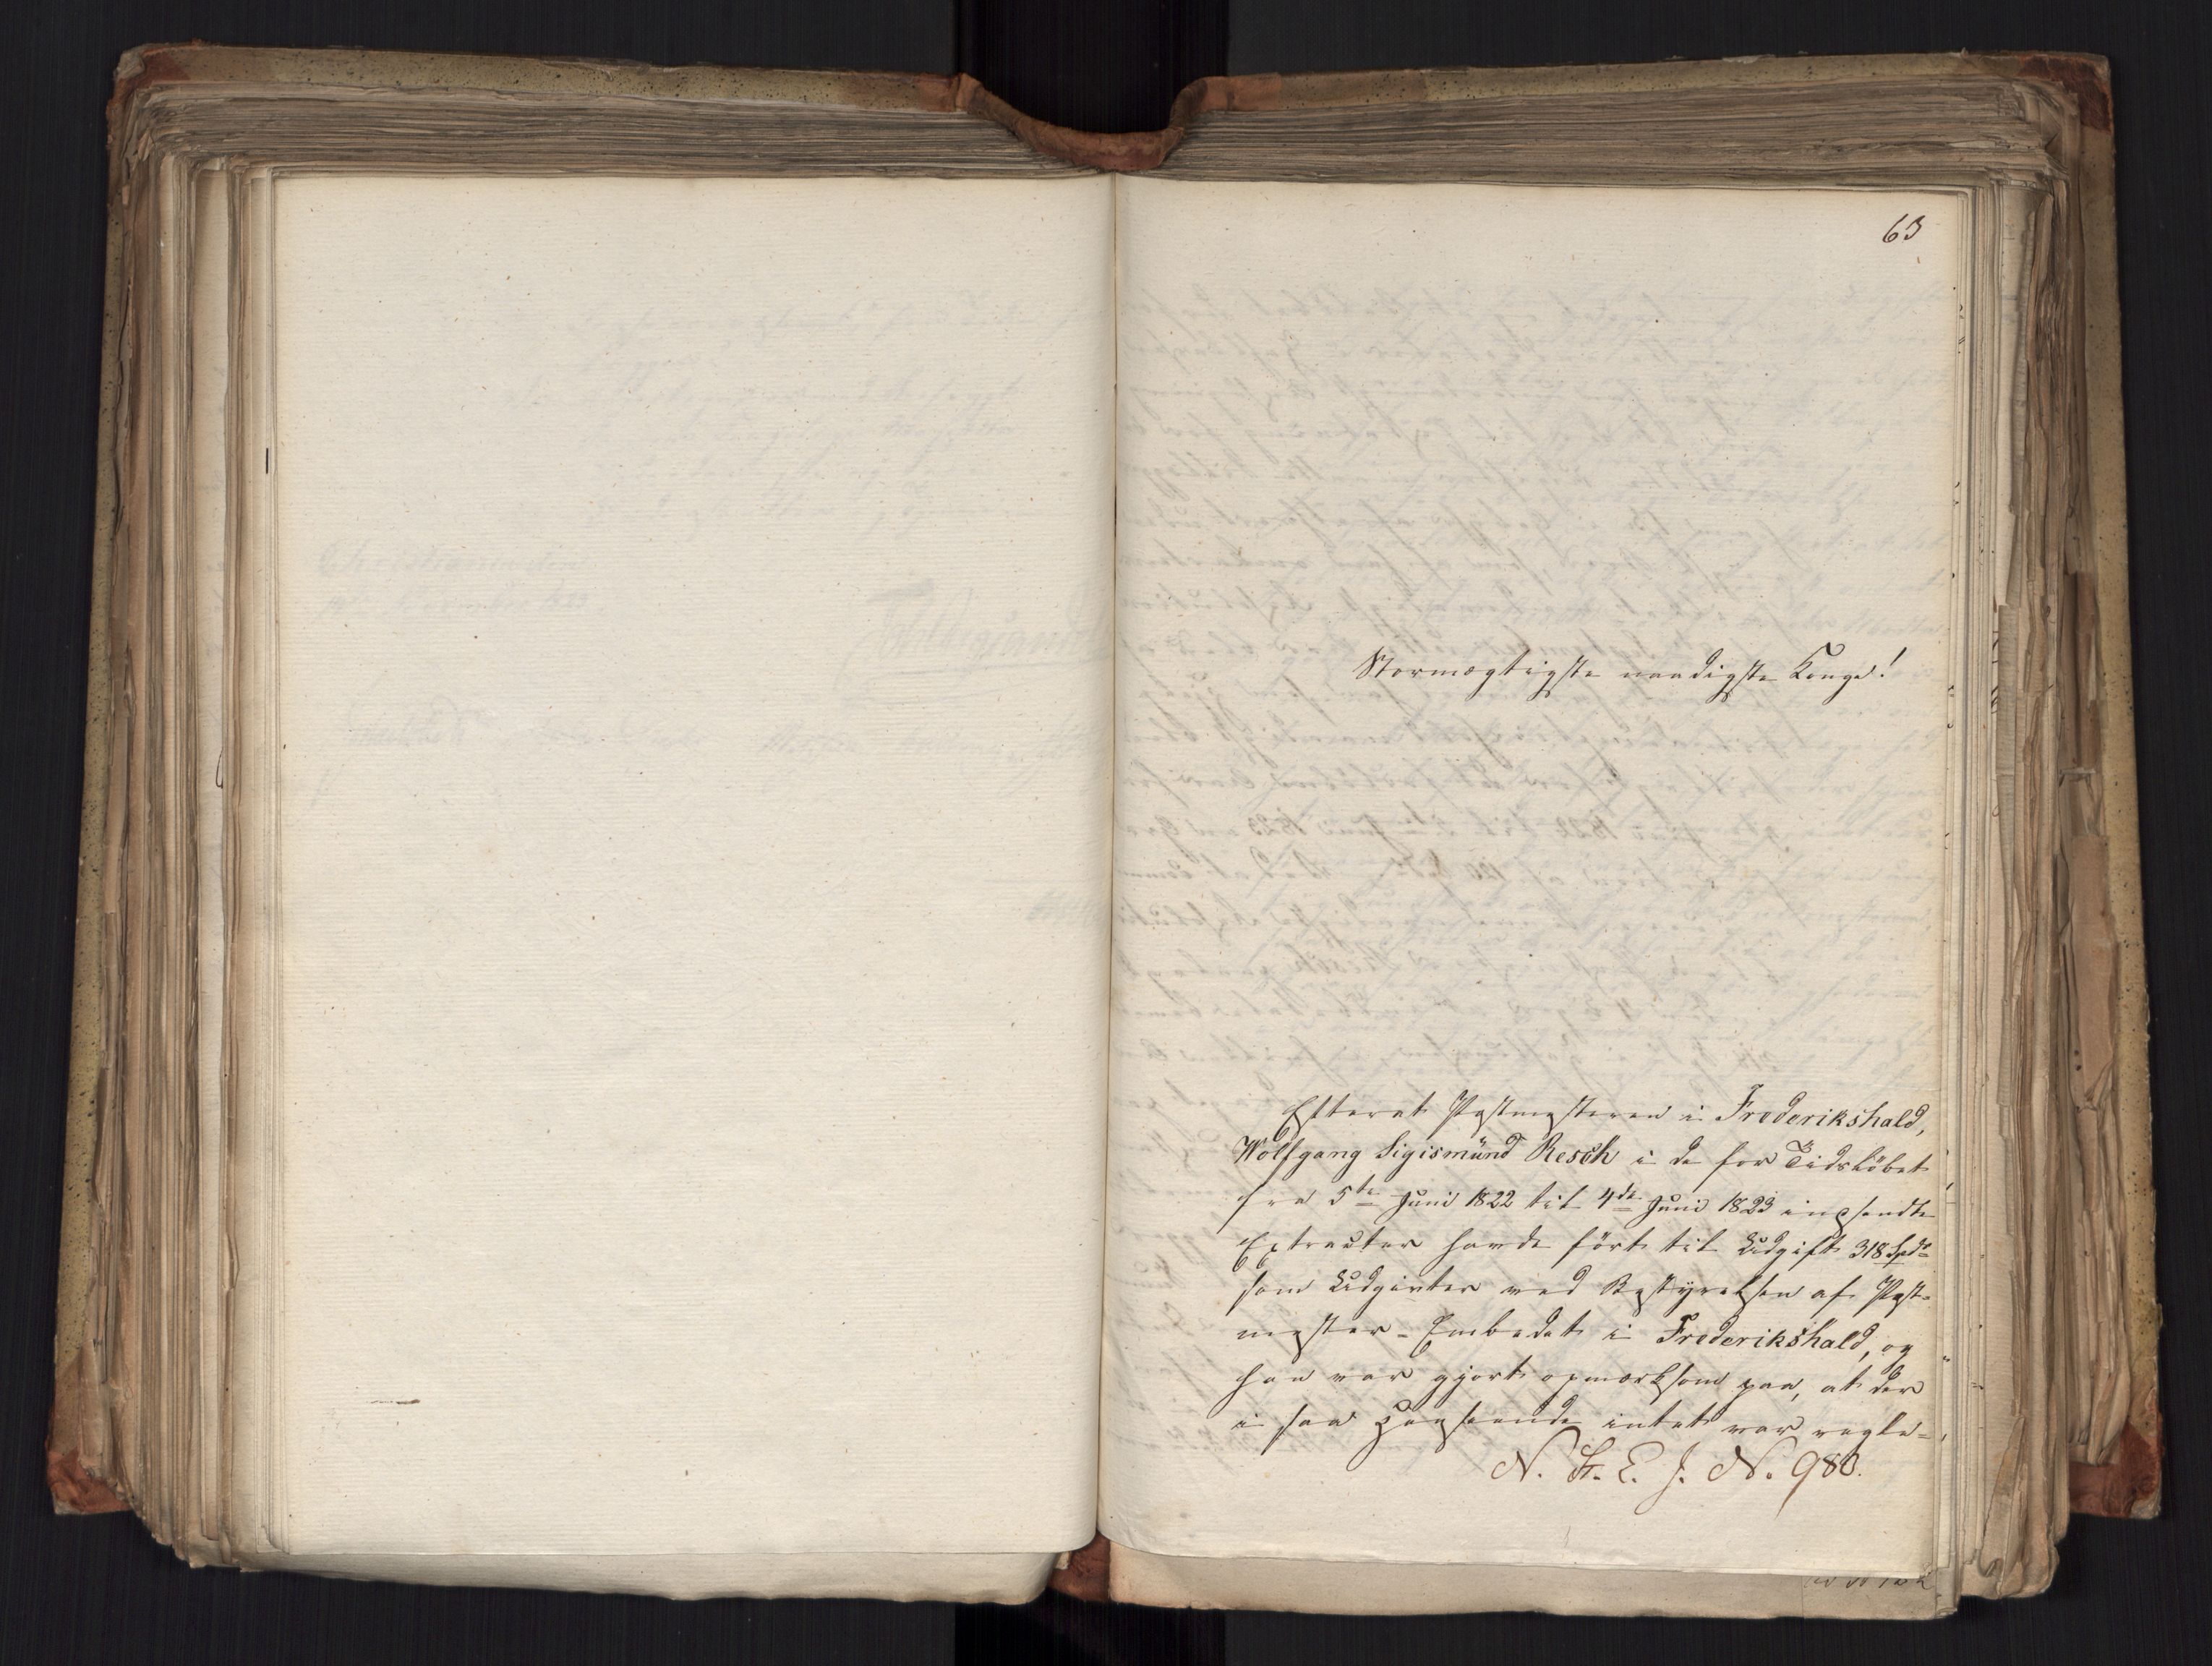 63
Stormægtigste naadigste Konge!
Efterat Postmesteren i Frederikshald,
Wolfgang Sigismund Resch i de for Tidsløbet
fra 5te Juni 1822 til 4de Juni 1823 indsendte
Extracter havde ført til Udgift 318 Spd
som Udgivter ved Bestyrelsen af Post-
mester-Embedet i Frederikshald, og
han var gjort opmærksom paa, at der
i saa Henseende intet var regle-
N. St. E. J. N. 980.